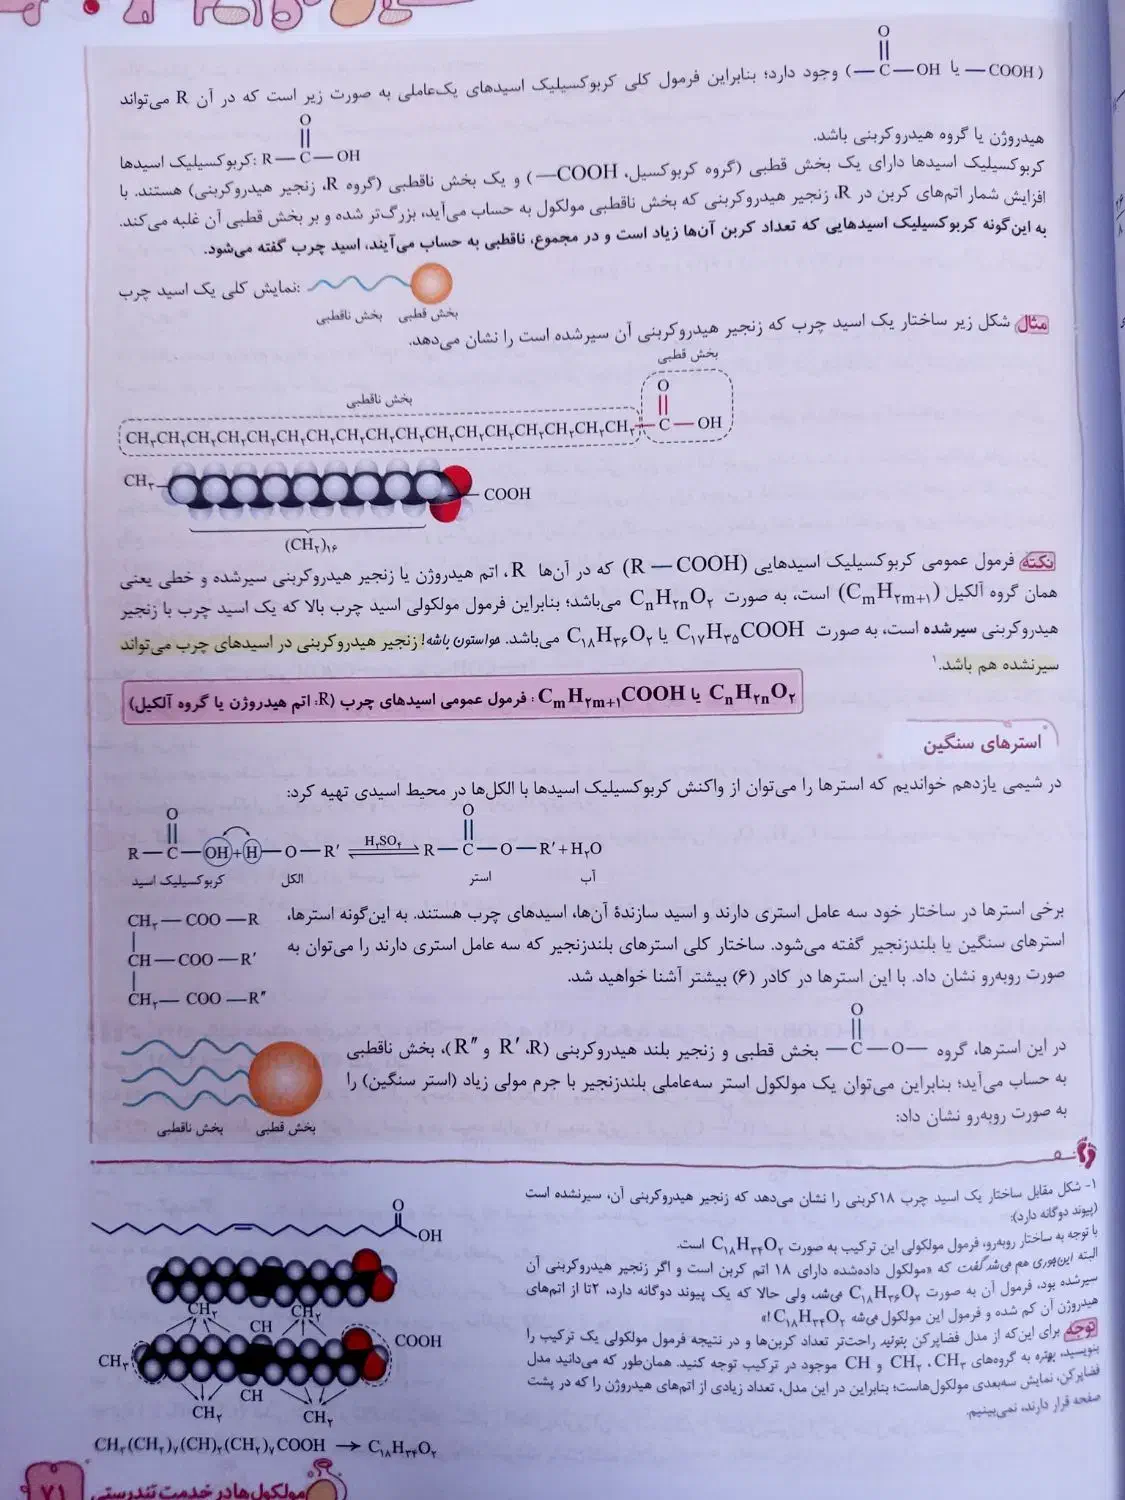 (—COOH یا —C(=O)—OH) وجود دارد؛ بنابراین فرمول کلی کربوکسیلیک اسیدهای یک‌عاملی به صورت زیر است که در آن R می‌تواند
هیدروژن یا گروه هیدروکربنی باشد.
کربوکسیلیک اسیدها: R—C(=O)—OH
کربوکسیلیک اسیدها دارای یک بخش قطبی (گروه کربوکسیل، COOH—) و یک بخش ناقطبی (گروه R، زنجیر هیدروکربنی) هستند. با
افزایش شمار اتم‌های کربن در R، زنجیر هیدروکربنی که بخش ناقطبی مولکول به حساب می‌آید، بزرگ‌تر شده و بر بخش قطبی آن غلبه می‌کند.
به این‌گونه کربوکسیلیک اسیدهایی که تعداد کربن آن‌ها زیاد است و در مجموع، ناقطبی به حساب می‌آیند، اسید چرب گفته می‌شود.
نمایش کلی یک اسید چرب:
بخش قطبی بخش ناقطبی
مثال شکل زیر ساختار یک اسید چرب که زنجیر هیدروکربنی آن سیرشده است را نشان می‌دهد.
بخش قطبی
بخش ناقطبی
CH₃CH₂CH₂CH₂CH₂CH₂CH₂CH₂CH₂CH₂CH₂CH₂CH₂CH₂CH₂CH₂CH₂—C(=O)—OH
CH₃ COOH
(CH₂)₁₆
نکته فرمول عمومی کربوکسیلیک اسیدهایی (R—COOH) که در آن‌ها R، اتم هیدروژن یا زنجیر هیدروکربنی سیرشده و خطی یعنی
همان گروه آلکیل (CₘH₂ₘ₊₁) است، به صورت CₙH₂ₙO₂ می‌باشد؛ بنابراین فرمول مولکولی اسید چرب بالا که یک اسید چرب با زنجیر
هیدروکربنی سیرشده است، به صورت C₁₇H₃₅COOH یا C₁₈H₃₆O₂ می‌باشد. حواستون باشه! زنجیر هیدروکربنی در اسیدهای چرب می‌تواند
سیرنشده هم باشد.¹
CₙH₂ₙO₂ یا CₘH₂ₘ₊₁COOH : فرمول عمومی اسیدهای چرب (R: اتم هیدروژن یا گروه آلکیل)
استرهای سنگین
در شیمی یازدهم خواندیم که استرها را می‌توان از واکنش کربوکسیلیک اسیدها با الکل‌ها در محیط اسیدی تهیه کرد:
R—C(=O)—OH + H—O—R′ ⇌ H₂SO₄ R—C(=O)—O—R′ + H₂O
کربوکسیلیک اسید الکل استر آب
برخی استرها در ساختار خود سه عامل استری دارند و اسید سازندهٔ آن‌ها، اسیدهای چرب هستند. به این‌گونه استرها،
استرهای سنگین یا بلندزنجیر گفته می‌شود. ساختار کلی استرهای بلندزنجیر که سه عامل استری دارند را می‌توان به
صورت روبه‌رو نشان داد. با این استرها در کادر (۶) بیشتر آشنا خواهید شد.
CH₂—COO—R
CH—COO—R′
CH₂—COO—R″
در این استرها، گروه —C(=O)—O— بخش قطبی و زنجیر بلند هیدروکربنی (R، R′ و R″)، بخش ناقطبی
به حساب می‌آید؛ بنابراین می‌توان یک مولکول استر سه‌عاملی بلندزنجیر با جرم مولی زیاد (استر سنگین) را
به صورت روبه‌رو نشان داد:
بخش قطبی بخش ناقطبی
۱- شکل مقابل ساختار یک اسید چرب ۱۸کربنی را نشان می‌دهد که زنجیر هیدروکربنی آن، سیرنشده است
(پیوند دوگانه دارد):
با توجه به ساختار روبه‌رو، فرمول مولکولی این ترکیب به صورت C₁₈H₃₄O₂ است.
البته این‌جوری هم می‌شد گفت که «مولکول داده‌شده دارای ۱۸ اتم کربن است و اگر زنجیر هیدروکربنی آن
سیرشده بود، فرمول آن به صورت C₁₈H₃₆O₂ می‌شد، ولی حالا که یک پیوند دوگانه دارد، ۲تا از اتم‌های
هیدروژن آن کم شده و فرمول این مولکول می‌شه C₁₈H₃₄O₂!»
توجه برای این‌که از مدل فضاپرکن بتونید راحت‌تر تعداد کربن‌ها و در نتیجه فرمول مولکولی یک ترکیب را
بنویسید، بهتره به گروه‌های CH₃، CH₂ و CH موجود در ترکیب توجه کنید. همان‌طور که می‌دانید مدل
فضاپرکن، نمایش سه‌بعدی مولکول‌هاست؛ بنابراین در این مدل، تعداد زیادی از اتم‌های هیدروژن را که در پشت
صفحه قرار دارند، نمی‌بینیم.
O
OH
CH₂ CH₂
CH COOH
CH₃
CH
CH₂ CH₂
CH₃(CH₂)₇(CH)₂(CH₂)₇COOH → C₁₈H₃₄O₂
مولکول‌ها در خدمت تندرستی
۷۱